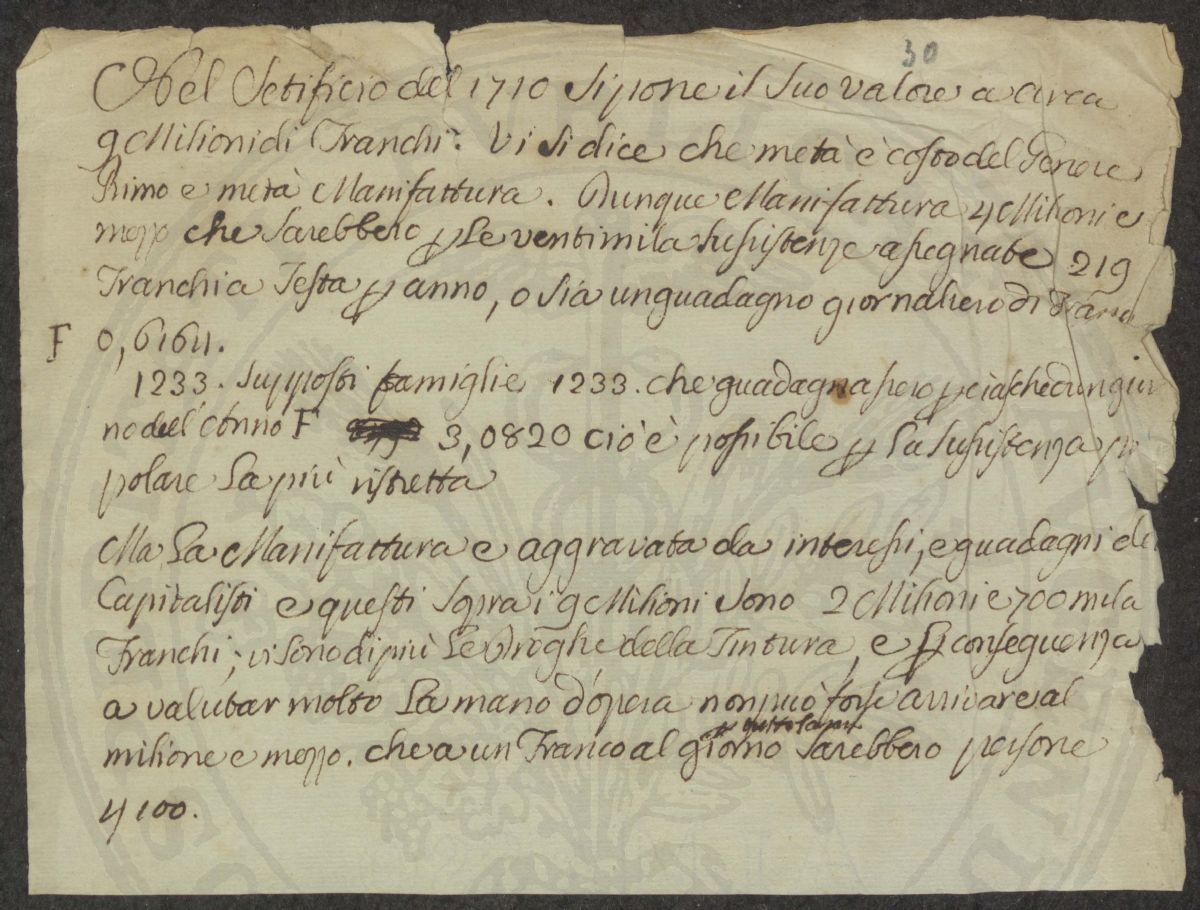 30
Nel Setificio del 1710 si pone il suo valore a circa
9 Milioni di Franchi. Vi si dice che metà è costo del Genere
Primo e metà Manifattura. Dunque Manifattura 4 Milioni e
mezzo che sarebbero p le ventimila sussistenze assegnate 219
Franchi a Testa p anno, o sia un guadagno giornaliero di
F 0,6164.
1233. supposti famiglie 1233. che guadagnassero p ciaschedun gior
no dell'Anno F 3,0820 ciò è possibile p la sussistenza po
polare la più ristretta
Ma la Manifattura e aggravata da interessi, e guadagni de
Capitalisti e questi sopra i 9 Milioni sono 2 Milioni e 700 mila
Franchi; vi sono di più le Droghe della Tintura, e p conseguenza
a valutar molto la mano d'opera non può forse arrivare al
milione e mezzo. che a un Franco al giorno sarebbero persone
4100.